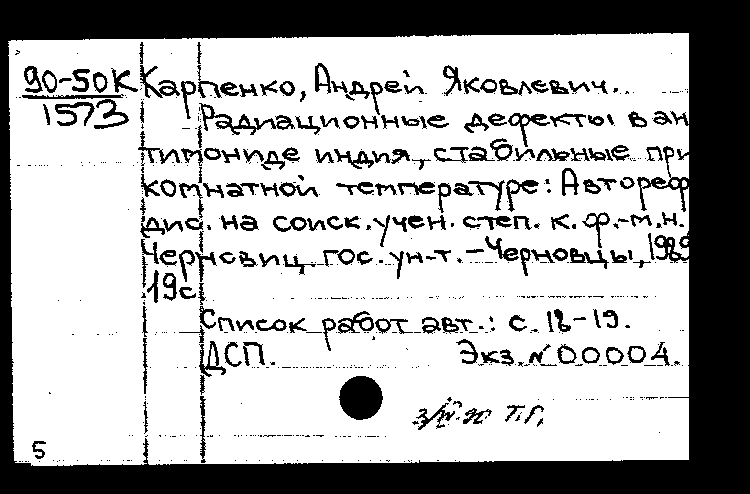 90-50К Карпенко, Андрей Яковлевич.
1573 Радиационные дефекты в ан
тимониде индия, стабильные при
комнатной температуре: Автореф
дис. на соиск. учен. степ. к. ф.-м.н.
Черновиц. гос. ун-т. - Черновцы, 1989
19с
Список работ авт.: с. 18-19.
ДСП. Экз. № 00004.
Т.Г.
5